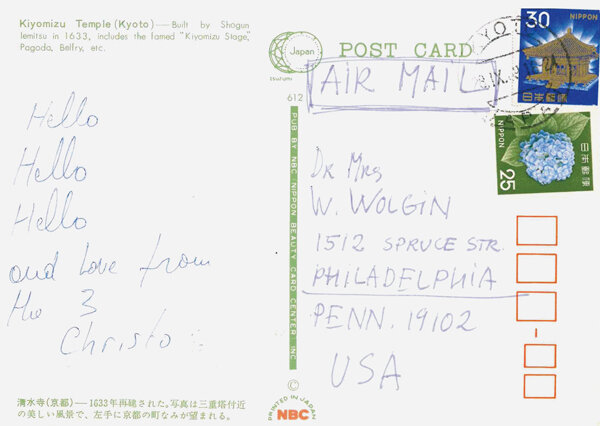 Kiyomizu Temple (Kyoto) — Built by Shogun
Iemitsu in 1633, includes the famed "Kiyomizu Stage,"
Pagoda, Belfry, etc.
Hello
Hello
Hello
and Love from
the 3
Christo
清水寺(京都)— 1633年再建された。写真は三重塔付近
の美しい風景で、左手に京都の町なみが望まれる。
Japan
tsutumi
612
PUB BY NBC NIPPON BEAUTY CARD CENTER, INC.
©
PRINTED IN JAPAN
NBC
POST CARD
AIR MAIL
30
NIPPON
日本郵便
KYOTO
25
NIPPON
日本郵便
DR Mrs
W. WOLGIN
1512 SPRUCE STR.
PHILADELPHIA
PENN. 19102
USA